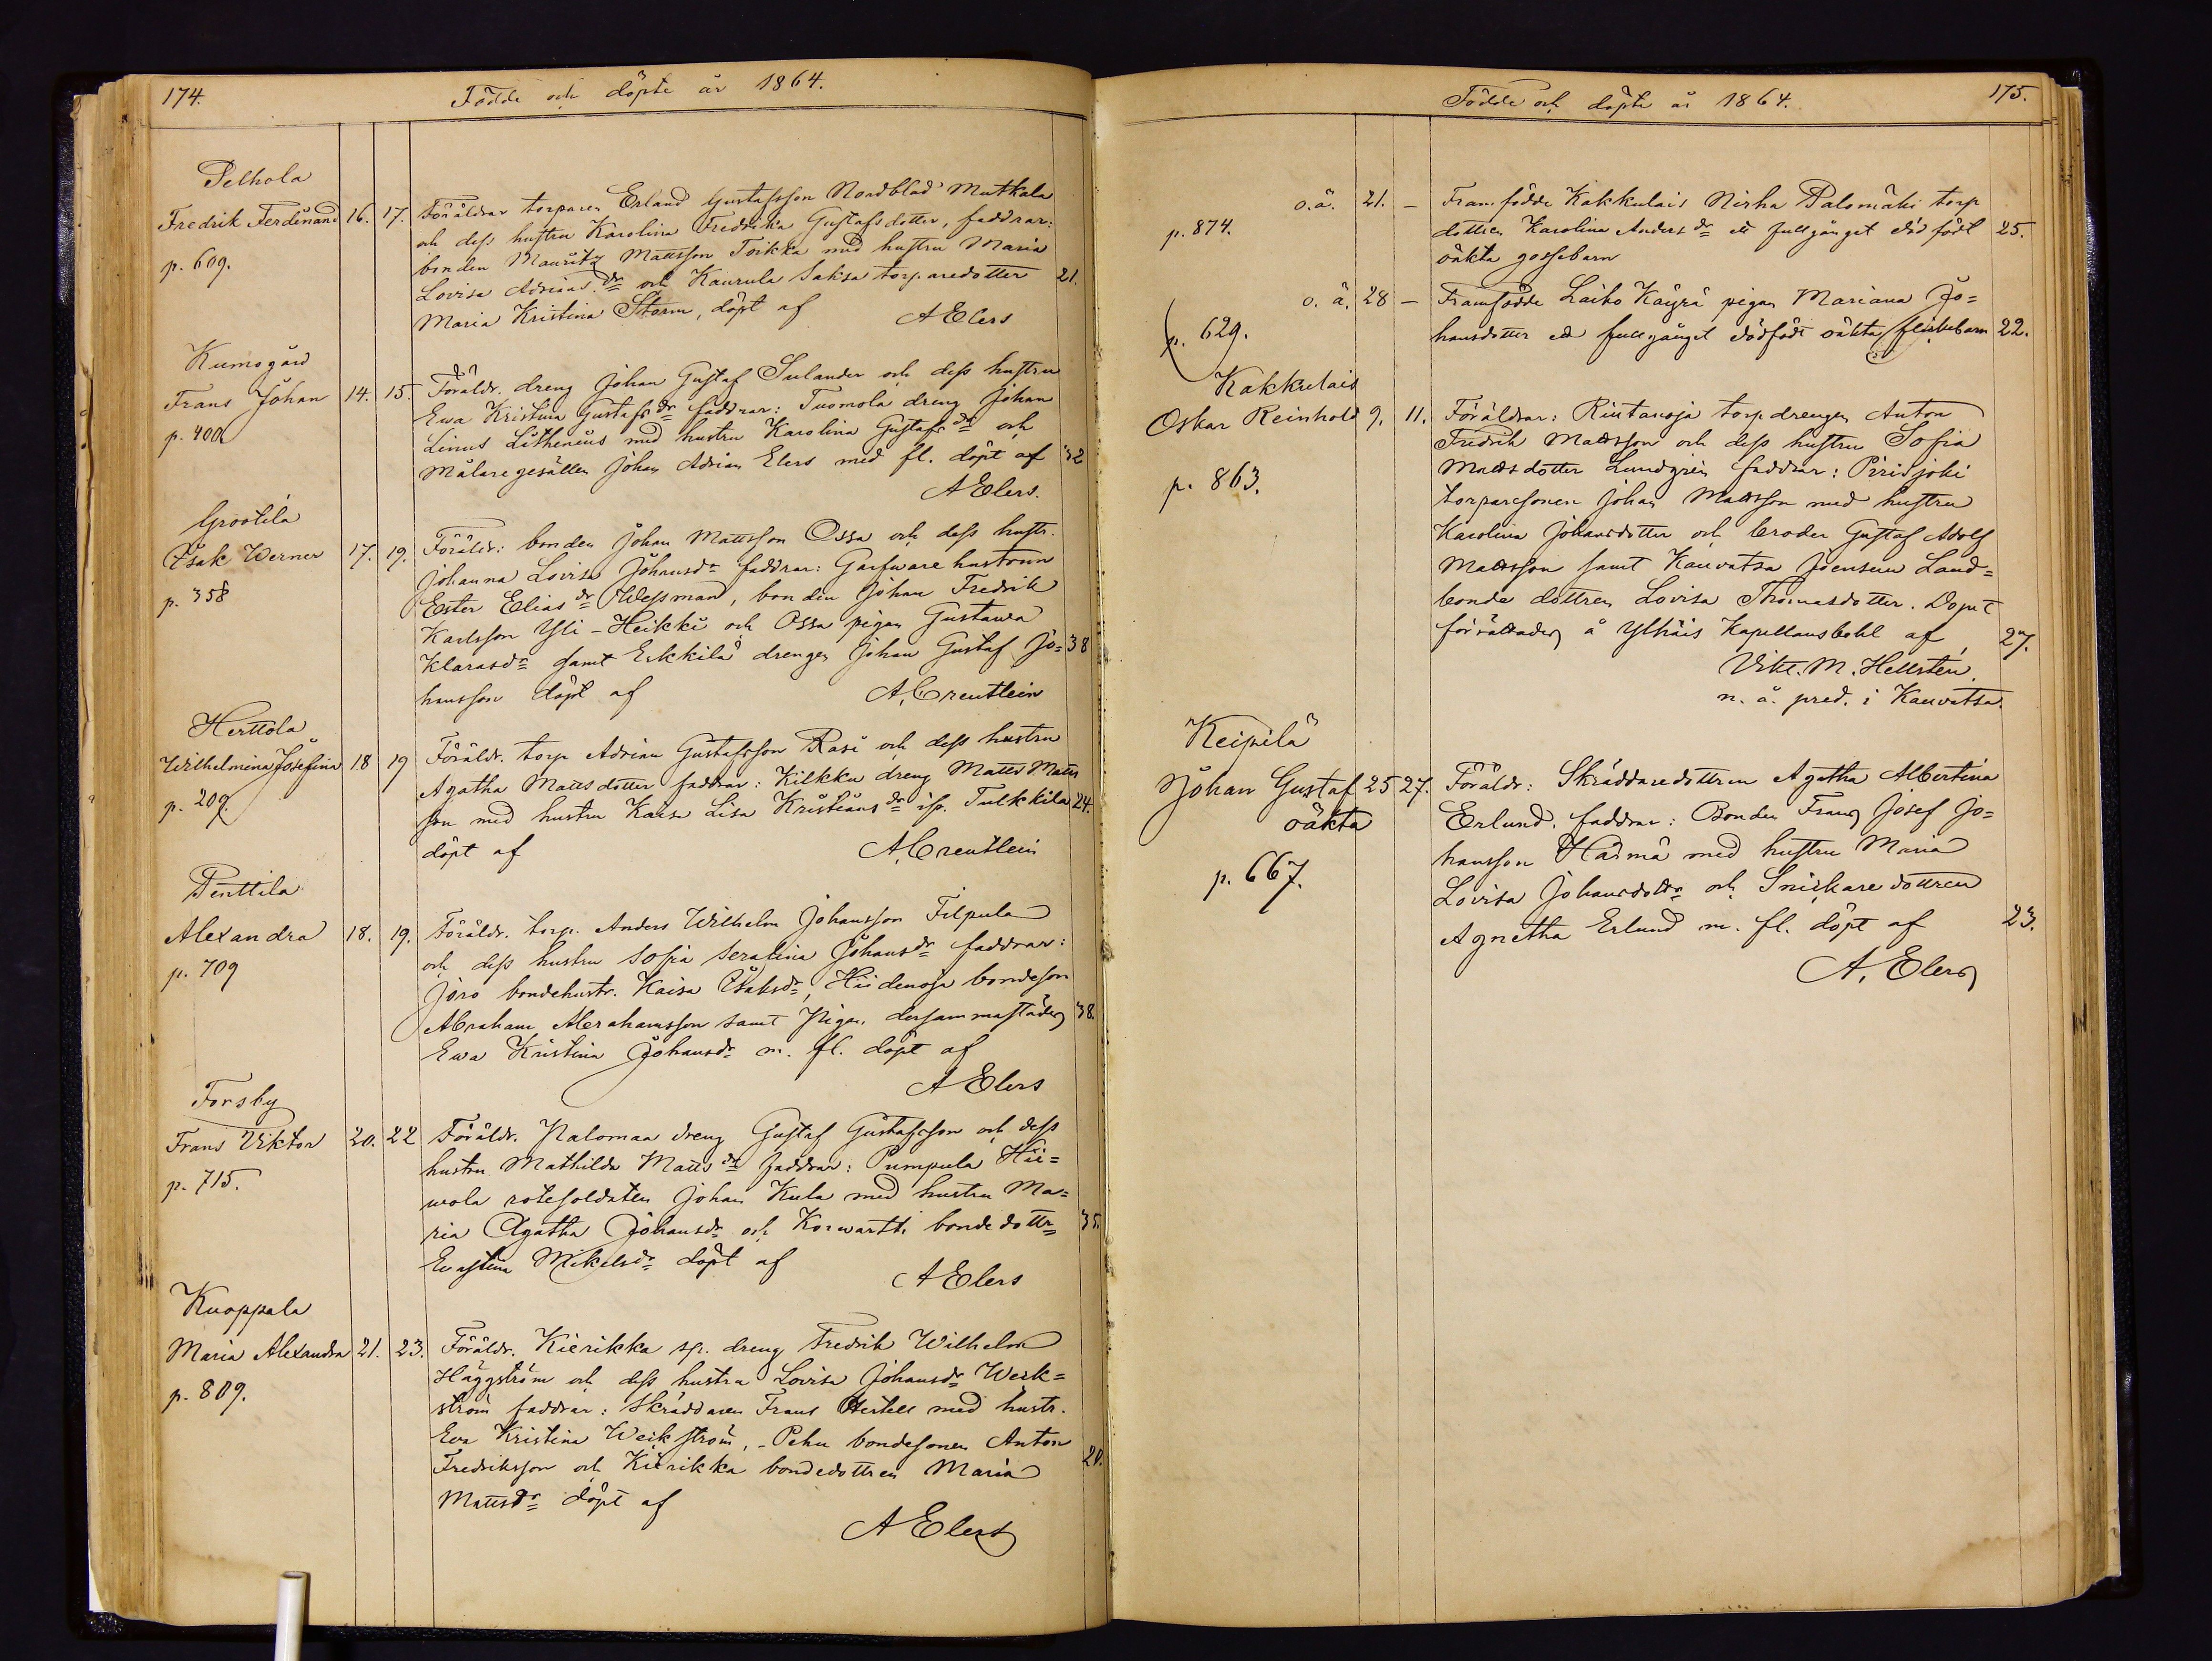 174.
Födde och döpte år 1864.
Pelhola
Fredrik Ferdinand 16. 17. Föräldrar torparen Erland Gustafsson Nordblad Mutkala
p. 609. och dess hustru Karolina Fredrika Gustafsdotter, faddrar:
bonden Mauritz Mattsson Toikka med hustru Maria
Lovisa Adriansdr och Kaurula Saksa torparedotter 21.
Maria Kristina Storm, döpt af
A Elers
Kumogård
Frans Johan 14. 15. Föräldr. dreng Johan Gustaf Sulander och dess hustru
p. 400 Ewa Kristina Gustafsdr faddrar: Tuomola dreng Johan
Linus Lithenius med hustru Karolina Gustafsdr och
Målaregesällen Johan Adrian Elers med fl. döpt af 32
A Elers.
Grootila
Isak Werner 17. 19. Föräldr: bonden Johan Mattsson Ossa och dess hustr.
p. 358 Johanna Lovisa Johansdr faddrar: Garfware hustrun
Ester Eliasdr Wessman, bonden Johan Fredrik
Karlsson Yli-Heikki och Ossa pigan Gustawa
Klarasdr samt Erkkilä drengen Johan Gustaf Jo= 38
hansson döpt af
A. Creutlein
Herttola
Wilhelmina Josefina 18 19 Föräldr. torp Adrian Gustafsson Rasi och dess hustru
p. 209. Agatha Mattsdotter faddrar: Kilkku dreng Matts Matts
son med hustru Kaisa Lisa Kristiansdr isr. Tulkkila 24.
döpt af
A. Creutlein
Penttila
Alexandra 18. 19. Föräldr. torp. Anders Wilhelm Johansson Filpula
p. 709 och dess hustru Sofia Serafina Johansdr faddrar:
Joro bondehustr. Kaisa Isaksdr, Hiidenoja bondeson
Abraham Abrahamsson samt Pigan dersammastädes 38.
Ewa Kristina Johansdr m. fl. döpt af
A Elers
Forsby
Frans Viktor 20. 22 Föräldr. Palomaa dreng Gustaf Gustafsson och dess
p. 715. hustru Mathilda Mattsdr faddrar: Pumpula Hii=
wola rotesoldaten Johan Kula med hustru Ma=
ria Agatha Johansdr och Korwartti bondedottr 35.
Evastina Mikelsdr döpt af
A Elers
Knoppala
Maria Alexandra 21. 23. Föräldr. Kierikka sp. dreng Fredrik Wilhelm
p. 809. Häggström och dess hustru Lovisa Johansdr Werk=
ström faddrar: Skräddaren Frans Hertell med hustr.
Eva Kristina Weikström, Pehu bondesonen Anton 20.
Fredriksson och Kierikka bondedottren Maria
Mattsdr döpt af
A Elers
Födde och döpte år 1864.
175.
o.ä. 21. — Framfödde Kakkulais Nirha Palomäki torp
p. 874. dottren Karolina Andersdr ett fullgånget dödfödt 25.
oäkta gossebarn
o. ä. 28 — Framfödde Laiho Käyrä pigan Mariana Jo=
p. 629. hansdotter ett fullgånget dödfödt oäkta flickebarn 22.
Kakkulais
Oskar Reinhold 9. 11. Föräldrar: Rintanoja torpdrengen Anton
Fredrik Mattsson och dess hustru Sofia
p. 863. Mattsdotter Lundgrén faddrar: Piirisjoki
torparesonen Johan Mattsson med hustru
Karolina Johansdotter och broder Gustaf Adolf
Mattsson samt Kauvatsa Joensuu Land=
bonde dottren Lovisa Thomasdotter. Dopet
förrättades å Yttiläis Kapellansbohl af 27.
Vikt. M. Hellstén.
n. å. pred. i Kauvatsa.
Keipilä
Johan Gustaf 25 27. Föräldr: Skräddaredottren Agatha Albertina
oäkta Erlund. faddrar: Bonden Frans Josef Jo=
p. 667. hansson Härmä med hustru Maria
Lovisa Johansdottr och Snickaredottren
Agnetha Erlund m. fl. döpt af 23.
A. Elers